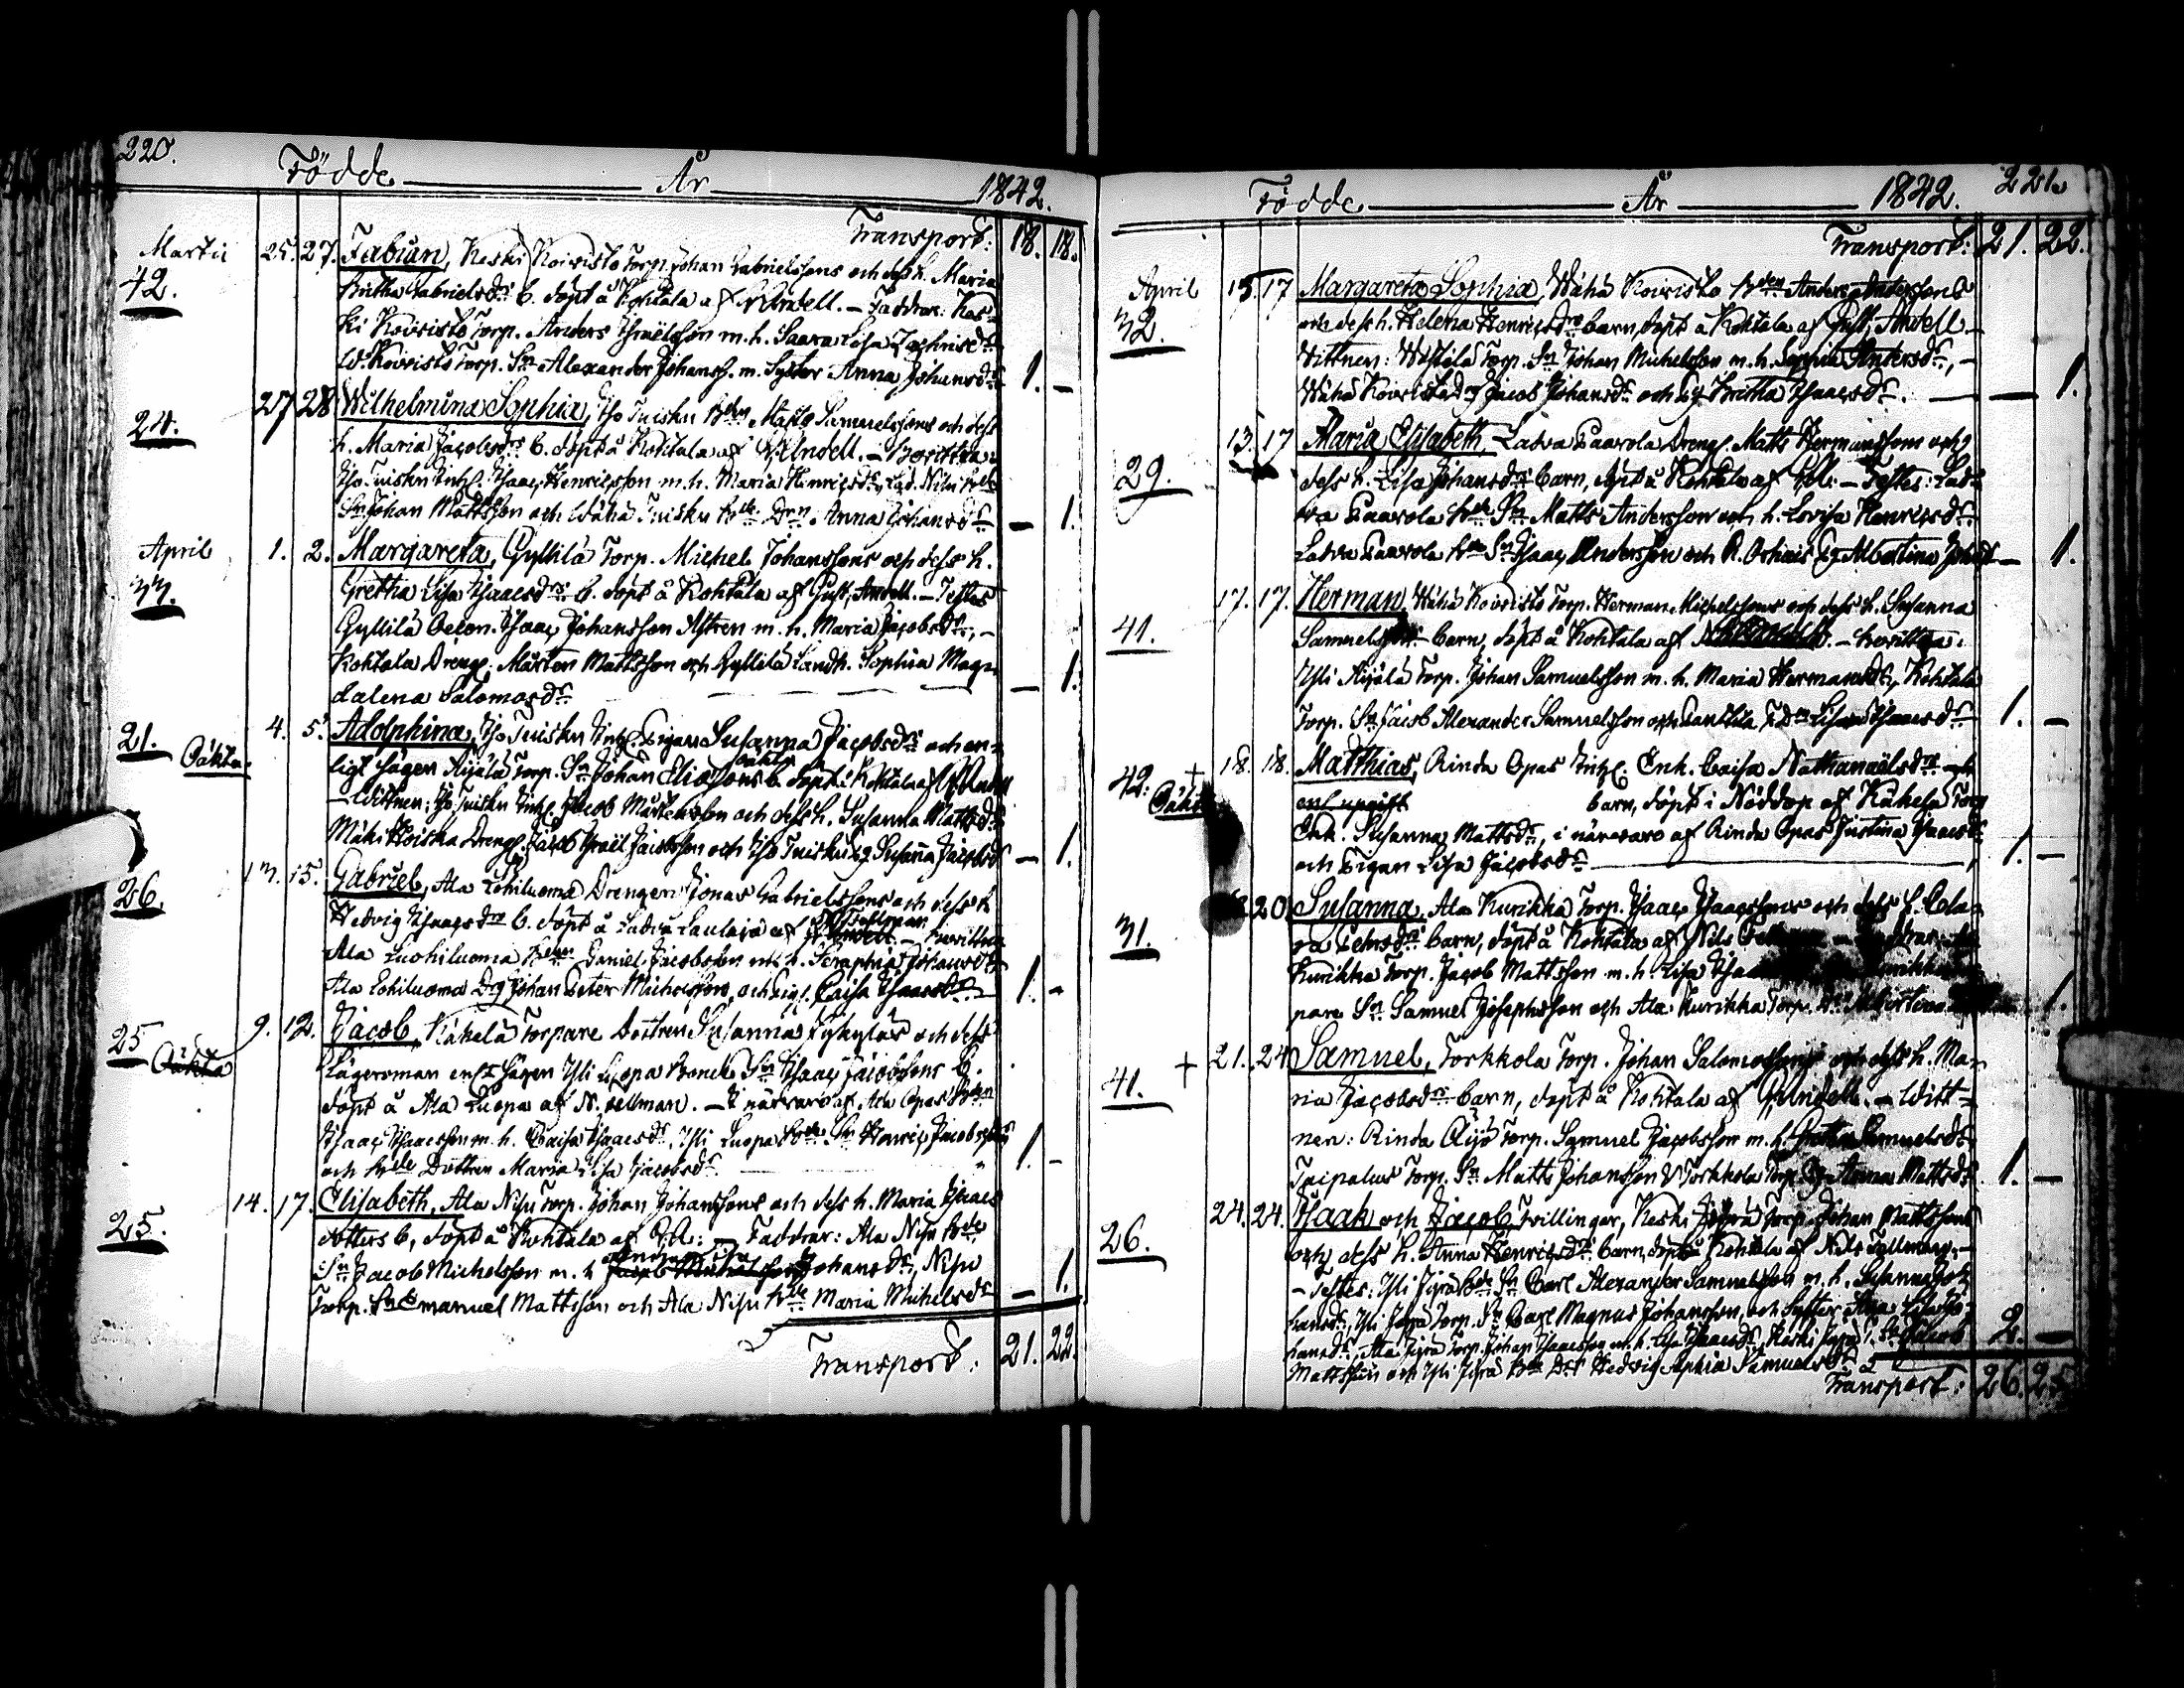 220.
Födde År 1842.
Transport: 18. 18.
Martii 25. 27. Fabian, Keski Koivisto Torp. Johan Gabrielssons och dess h. Maria
42. Britha Gabrielsdrs b. döpt å Kohtala af Andell. – Faddrar: Kes-
ki Koivisto Torp. Anders Israelsson m. h. Saara Lisa Zachrisdr
W. Koivisto Torp. Sn Alexander Johanss. m. Syster Anna Johansdr 1. –
27 28 Wilhelmina Sophia, Iso Tuisku Matts Samuelssons och dess
24. h. Maria Jacobsdrs b. döpt å Kohtala af Andell. –
Iso Tuisku Inh. Isaac Henricsson m. h. Maria Henricsdr, Nisu
Sn Johan Mattsson och Wähä Tuisku Bde Drn Anna Johansdr – 1.
April 1. 2. Margareta, Gyllilä Torp. Michel Johanssons och dess h.
33. Gretha Lisa Isaacsdrs b. döpt å Kohtala af Gust. Andell. – Testes
Gyllilä Isaac Johansson m. h. Maria Jacobsdr, –
Kohtala Dreng. Mårten Mattsson och Gyllilä Sophia Mag-
dalena Salomosdr – 1.
21. Oäkta 4. 5. Adolphina, Iso Tuisku Inh. Pigan Susanna Jacobsdrs och en-
ligt sägen Äijälä Torp. Sn Johan Eliassons oäkta b. döpt i Kohtala af
– Wittnen: Iso Tuisku Inh. Jacob Mårtensson och dess h. Susanna Mattsdr
Mäki Koiska Dreng. Israel Jacobsson och Iso Tuisku Pg Susanna Jacobsdr – 1.
26. 13. 15. Gabriel, Ala Lohiluoma Drengen Jonas Gabrielssons och dess h.
Hedvig Isaacsdrs b. döpt å Latva Laulaja af Fellman –
Ala Luohiluoma Daniel Jacobsson m. h. Seraphia Johansdr
Ala Lohiluoma Drg Johan Peter Michelsson, och Pig. Caisa Isaacsdr 1. –
25 Oäkta 9. 12. Jacob, Käkelä Torpare Dottren Susanna och dess
lägersman enl. sägen Yli Luopa Bonde Sn Isaac Jacobssons b.
döpt å Ala Luopa af N. Fellman. – I närvaro af Ala Opas
Isaac Isaacsson m. h. Caisa Isaacsdr, Yli Luopa Bde Sn Henric Jacobsson
och Bde Dottren Maria Lisa Jacobsdr 1. –
25. 14. 17. Elisabeth, Ala Nisu Torp. Johan Johanssons och dess h. Maria Isaacs
dotters b, döpt å Kohtala af G. A: – Faddrar: Ala Nisu Bde
Sn Jacob Michelsson m. h. Johansdr, Nisu
Torp. Sn Emanuel Mattsson och Ala Nisu Bde Maria Michelsdr – 1.
Transport: 21. 22.
221.
Födde År 1842.
Transport: 21. 22.
April 15 17 Margareta Sophia, Wähä Koivisto Anders Anderssons
32. och dess h. Helena Henricsdrs barn, döpt å Kohtala af Gust. Andell –
Wittnen: Torp. Sn Johan Michelsson m. h. Sophia Andersdr, –
Wähä Koivisto Jacob och Pig. Britha Isaacsdr. – 1.
13. 17 Maria Elisabeth, Latva Paavola Dreng. Matts Hermanssons och
29. dess h. Lisa Johansdrs barn, döpt å Kohtala af G. A: – Testes: Lat-
va Paavola Bde Sn Matts Andersson och h. Lovisa Henricsdr
Latva Paavola Bde Sn Isaac Andersson och Pg Albertina – 1.
17. 17. Herman, Wähä Koivisto Torp. Herman Michelssons och dess h. Susanna
41. Samuelsdrs barn, döpt å Kohtala af –
Yli Äijälä Torp. Johan Samuelsson m. h. Maria Hermansdr, Kohtala
Torp. Sn Jacob Alexander Samuelsson och Panttila Lisa Isaacsdr 1. –
42. Oäkta + 18. 18. Matthias, Rinda Opas Inh. Enk. Caisa Nathanaëlsdrs
barn, döpt i Nöddop af Käkelä Torp
Enk. Susanna Mattsdr, i närvaro af Rinda Opas Justina Isaacsdr
och Pigan Lisa Jacobsdr 1. –
31. 20. Susanna, Ala Kurikka Torp. Isaac Isaacssons och dess h.
barn, döpt å Kohtala af Nils
Kurikka Torp. Jacob Mattsson m. h. Lisa
pare Sn Samuel Josephsson och Ala Kurikka Torp. 1.
41. + 21. 24. Samuel, Torkkola Torp. Johan Salomossons och dess h. Ma-
ria Jacobsdrs barn, döpt å Kohtala af Andell. – Witt-
nen: Rinda Äijö Torp. Samuel Jacobsson m. h. Samuelsdr
Taipalus Torp. Sn Matts Johansson & Torkkola Torp. Anna Mattsdr 1. –
26. 24. 24. Isaak och Jacob, Twillingar, Keski Jyrä Torp. Johan Mattssons
och dess h. Anna Henricsdrs barn, döpt å Kohtala af Nils Fellman. –
– Testes: Yli Jyrä Bde Sn Carl Alexander Samuelsson m. h. Susanna Jo-
hansdr, Yli Jyrä Torp. Sn Carl Magnus Johansson och Syster Lisa Jo-
hansdr, Ala Jyrä Torp. Johan Isaacsson m. h. Lisa Isaacsdr, Keski Jyrä Sn Jacob 2. –
Mattsson och Yli Jyrä Bde Dr Hedvig Sophia Samuelsdr
Transport: 26. 25.